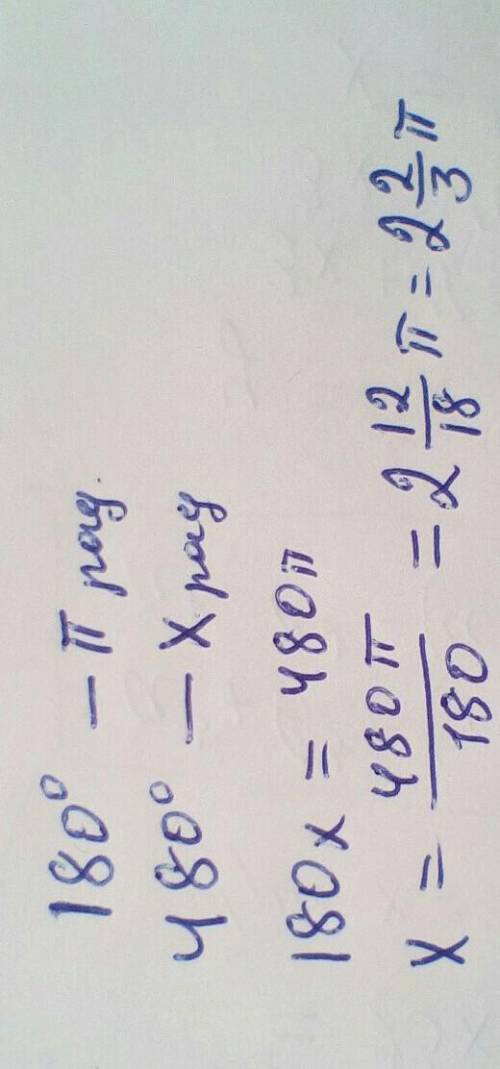 180° — π рад.
480° — x рад
180x = 480π
x = 480π/180 = 2 12/18 π = 2 2/3 π